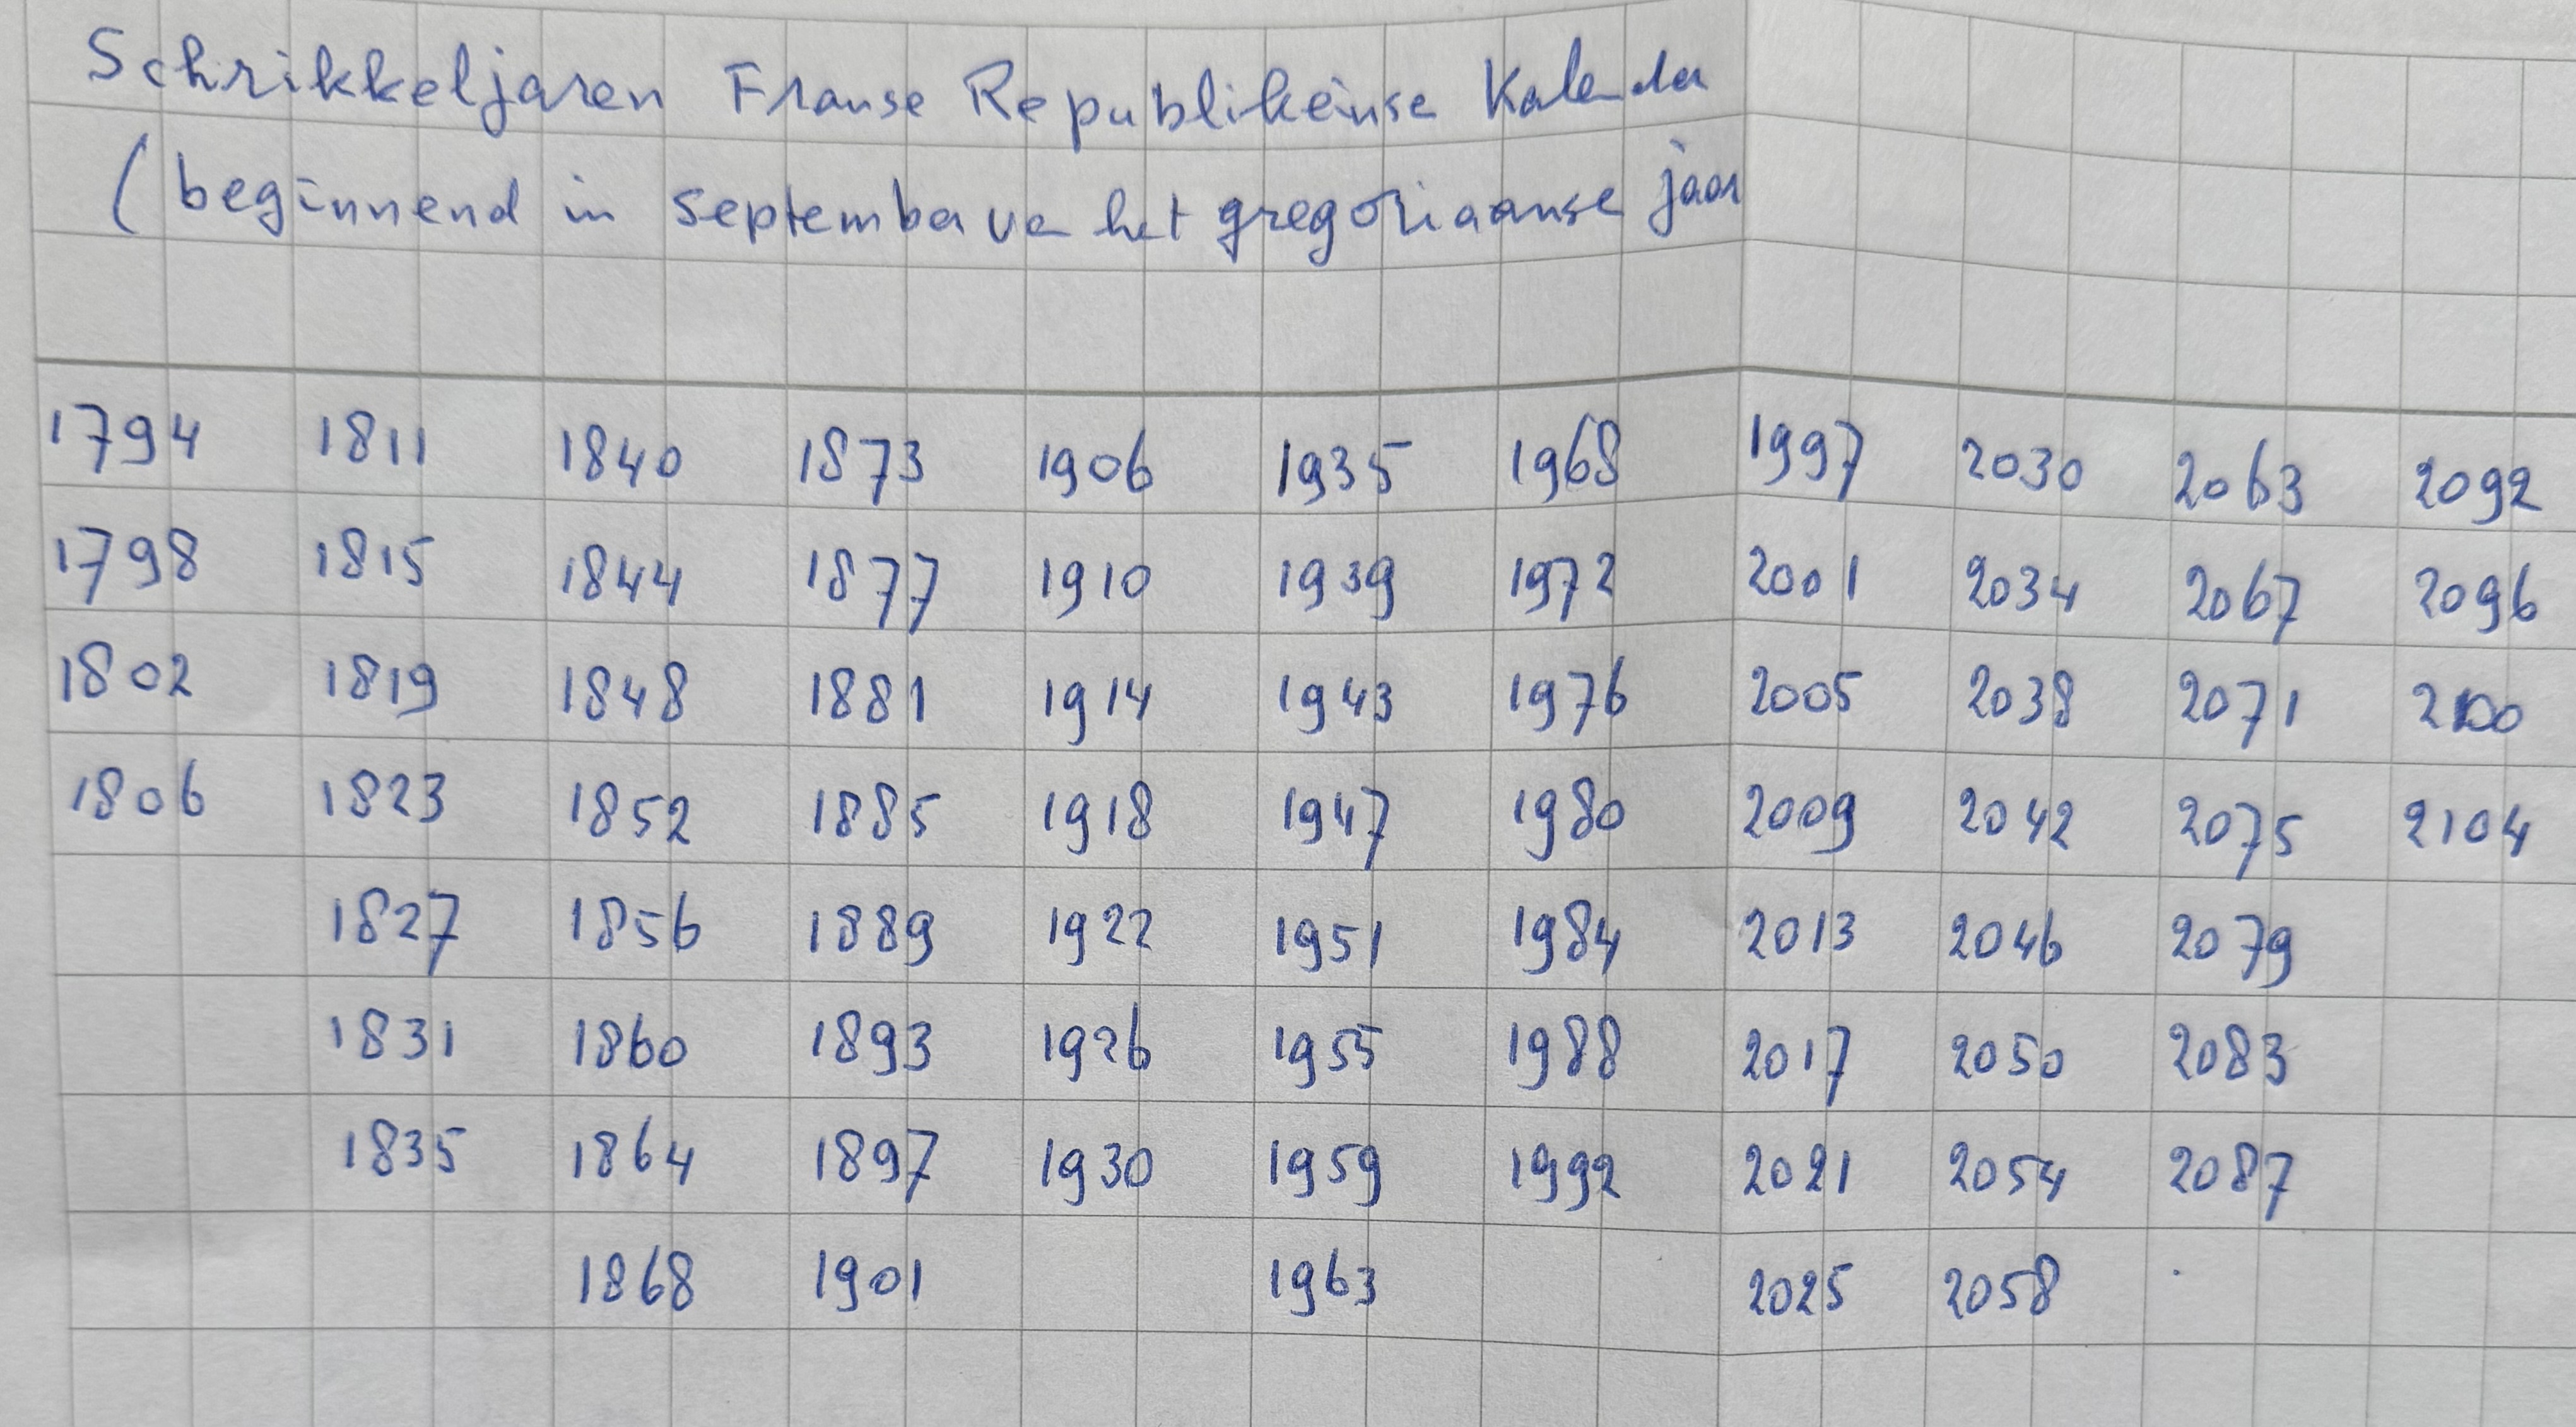 Schrikkeljaren Franse Republikeinse Kalender
(beginnend in september van het gregoriaanse jaar
1794 1811 1840 1873 1906 1935 1968 1997 2030 2063 2092
1798 1815 1844 1877 1910 1939 1972 2001 2034 2067 2096
1802 1819 1848 1881 1914 1943 1976 2005 2038 2071 2100
1806 1823 1852 1885 1918 1947 1980 2009 2042 2075 2104
1827 1856 1889 1922 1951 1984 2013 2046 2079
1831 1860 1893 1926 1955 1988 2017 2050 2083
1835 1864 1897 1930 1959 1992 2021 2054 2087
1868 1901 1963 2025 2058